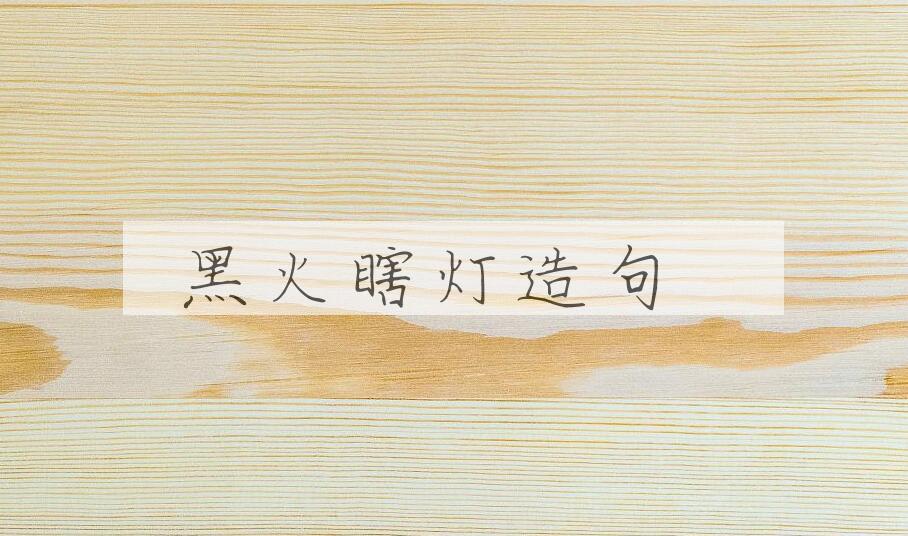 黑火瞎灯造句